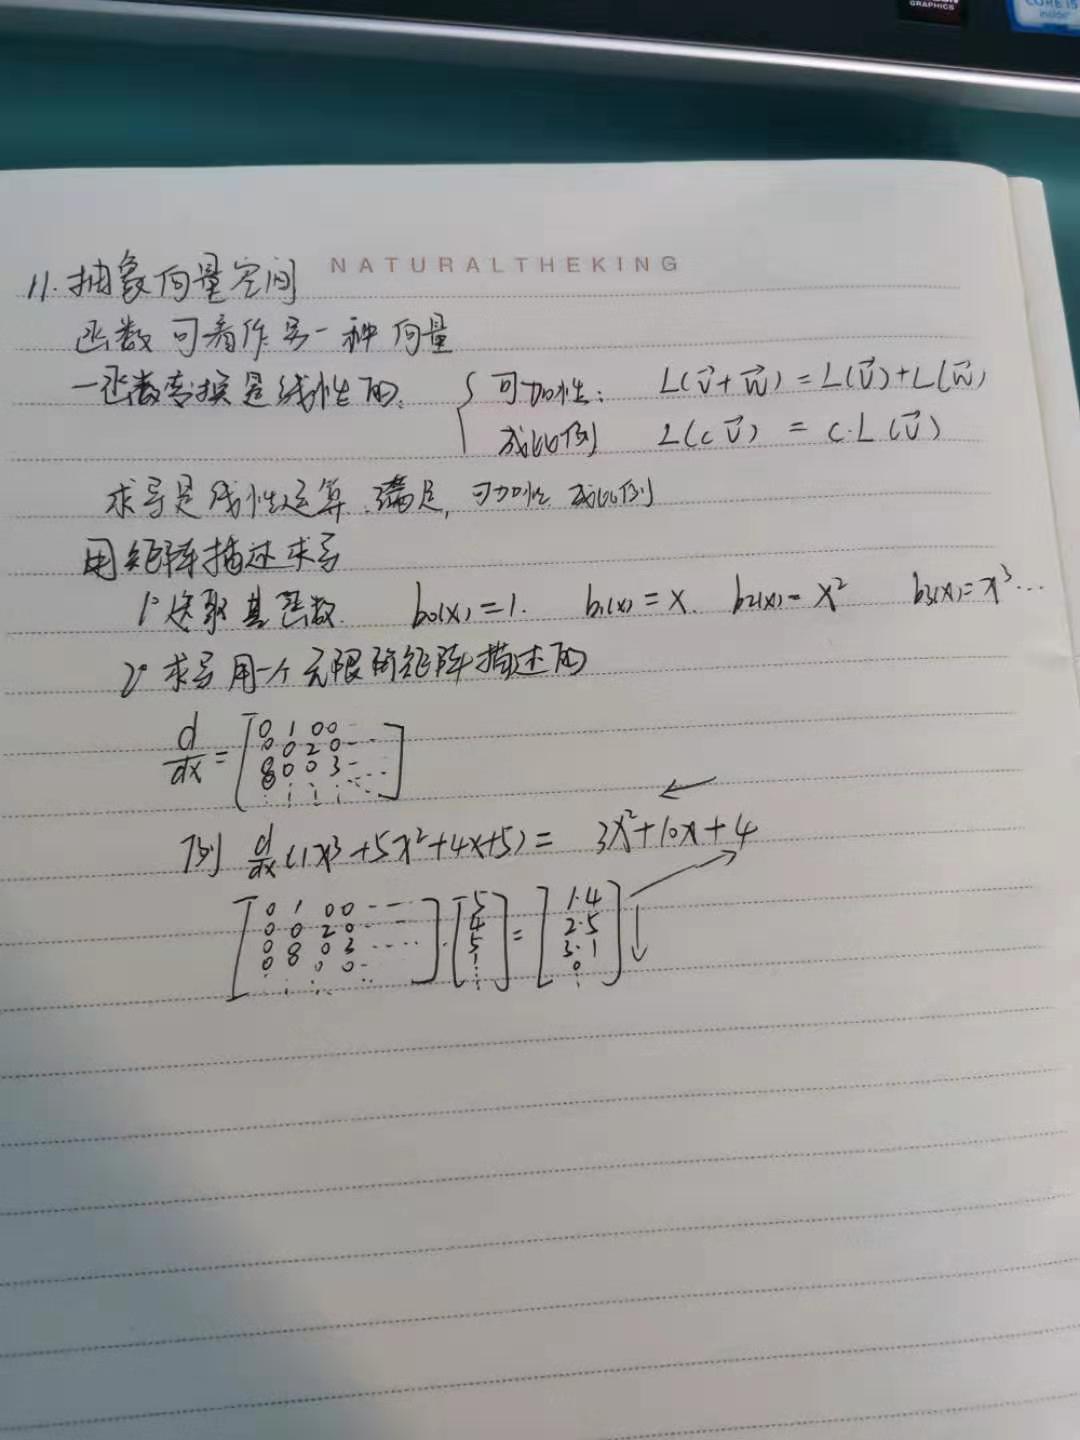 GRAPHICS
CORE i5
inside
NATURALTHEKING
11. 抽象向量空间
函数可看作另一种向量
一函数变换是线性的: { 可加性: L(v⃗+w⃗)=L(v⃗)+L(w⃗)
成比例 L(cv⃗) = c·L(v⃗)
求导是线性运算.满足,可加性 成比例
用矩阵描述求导
1° 选取基函数. b₀(x)=1. b₁(x)=x. b₂(x)=x² b₃(x)=x³...
2° 求导用一个无限的矩阵描述的
d/dx = [0 1 0 0 ...
0 0 2 0 ...
0 0 0 3 ...
⋮ ⋮ ⋮ ⋮ ...]
例 d/dx(1x³+5x²+4x+5) = 3x²+10x+4
[0 1 0 0 ... [5 [1·4
0 0 2 0 ... 4 2·5
0 0 0 3 ....] · 5 ] = 3·1 ]
0 0 0 0 .. 1 0
⋮ ⋮ ⋮ ⋮ ⋮